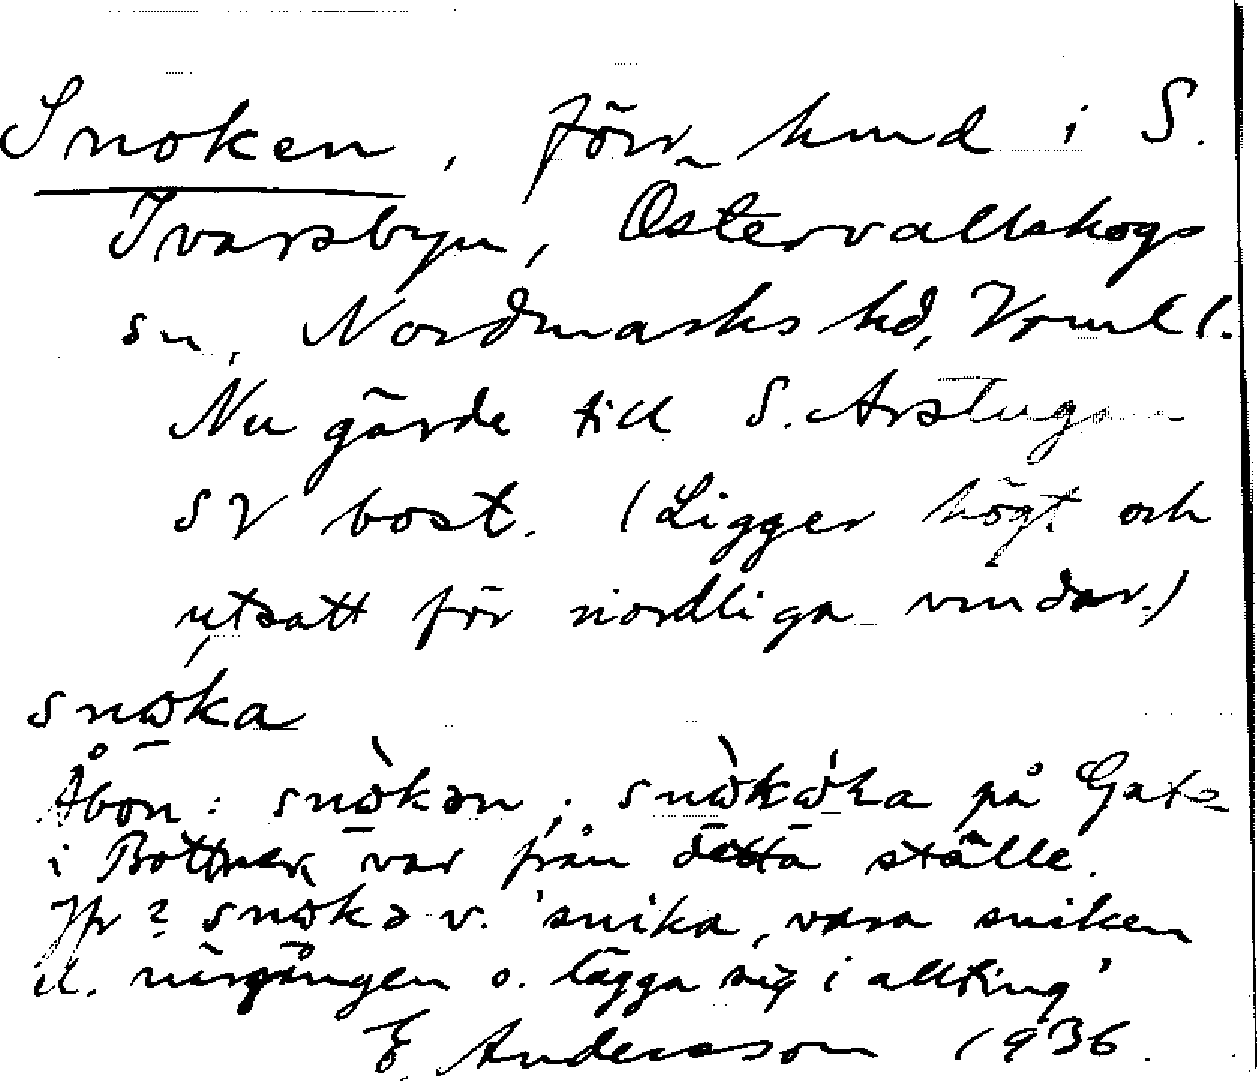 Snoken, förr hmd i S.
Ivarsbyn, Östervallskogs
sn, Nordmarks hd, Vrml l.
Nu gärde till S. Arstugan
SV bost. (Ligger högt och
utsatt för nordliga vindar.)
snɷka
Åbon: snɷ̀kən; snɷ̀kɷ́ka på Gate
i Bottnar var från detta ställe.
Jfr? snɷkə v. 'snika, vara sniken
el. närgången o. lägga sig i allting'
E. Andersson 1936.